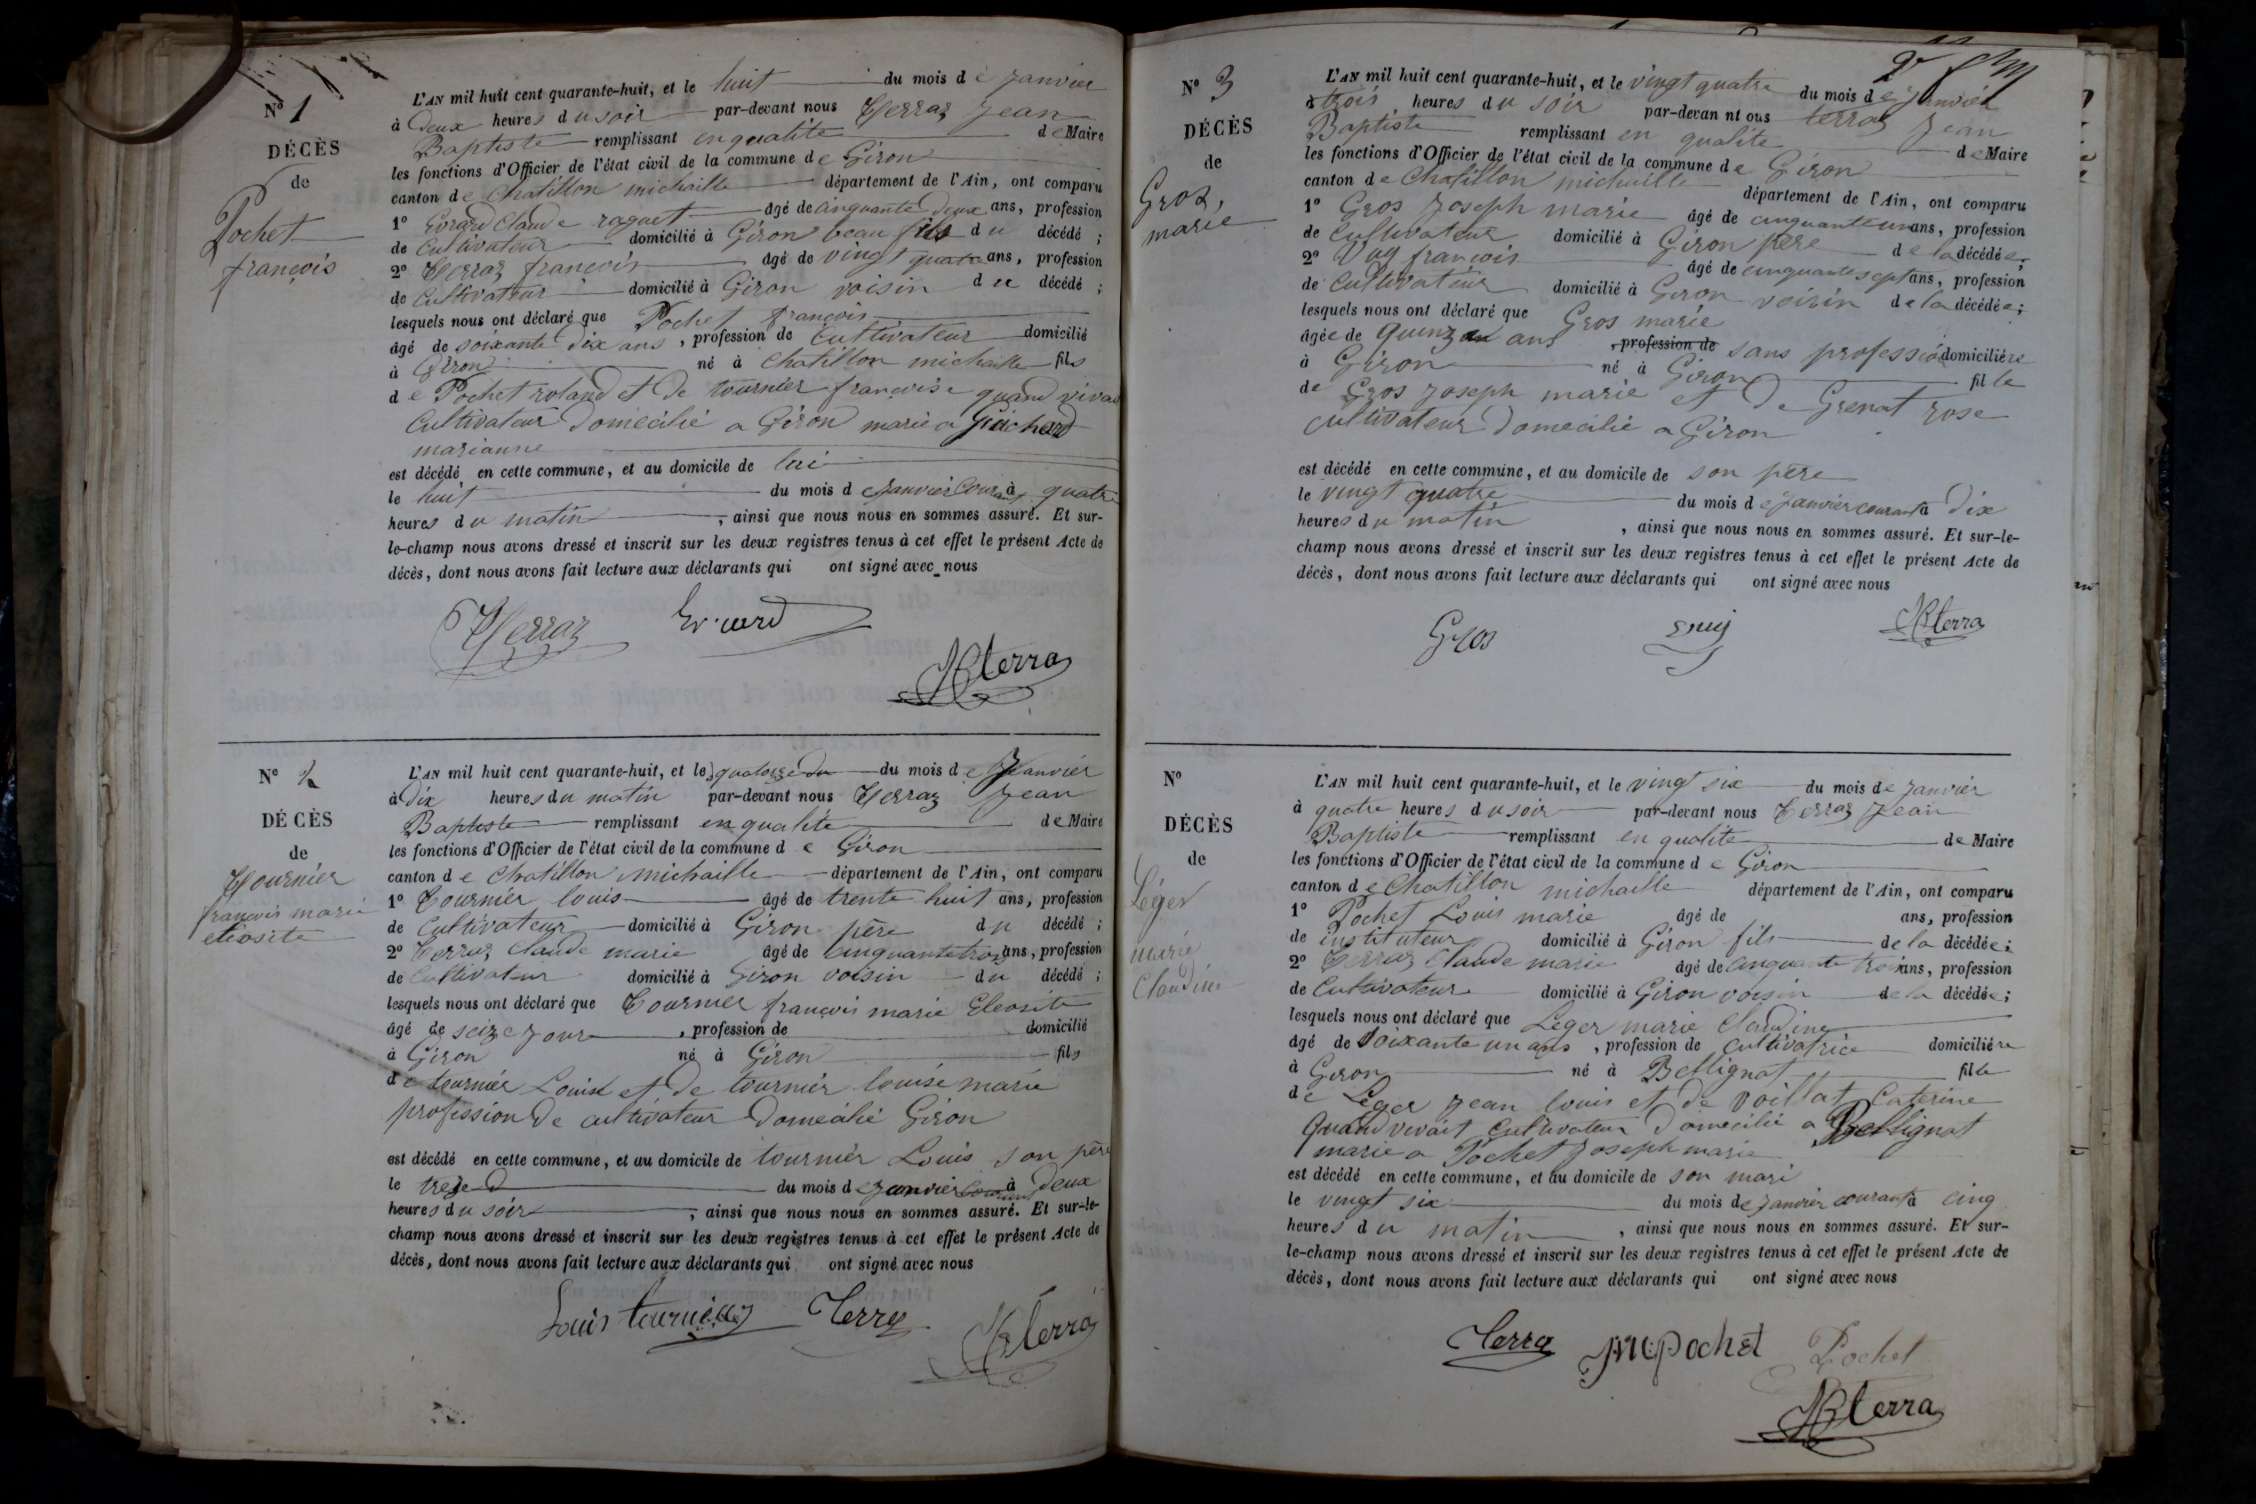 N° 1
DÉCÈS
de
Pochet
françois
L'AN mil huit cent quarante-huit, et le huit du mois de janvier
à Deux heures du soir par-devant nous Terraz Jean
Baptiste remplissant en qualité de Maire
les fonctions d'Officier de l'état civil de la commune de Giron
canton de Chatillon michaille département de l'Ain, ont comparu
1° Evrard Claude raguet âgé de cinquante deux ans, profession
de Cultivateur domicilié à Giron beau fils du décédé ;
2° Terraz françois âgé de vingt quatre ans, profession
de Cultivateur domicilié à Giron voisin du décédé ;
lesquels nous ont déclaré que Pochet françois
âgé de soixante dix ans, profession de Cultivateur domicilié
à Giron né à Chatillon michaille fils
de Pochet roland et de tournier françoise quand vivai
Cultivateur Domecilié a Giron marié a
marianne
est décédé en cette commune, et au domicile de lui
le huit du mois de janvier Courant à quatre
heures du matin, ainsi que nous nous en sommes assuré. Et sur-
le-champ nous avons dressé et inscrit sur les deux registres tenus à cet effet le présent Acte de
décès, dont nous avons fait lecture aux déclarants qui ont signé avec nous
Terraz Evrard
JBterra
N° 2
DÉCÈS
de
Tournier
françois marie
L'AN mil huit cent quarante-huit, et le quatorze du du mois de Janvier
à Dix heures du matin par-devant nous Terraz Jean
Baptiste remplissant en qualité de Maire
les fonctions d'Officier de l'état civil de la commune de Giron
canton de Chatillon michaille département de l'Ain, ont comparu
1° Tournier louis âgé de trente huit ans, profession
de Cultivateur domicilié à Giron père du décédé ;
2° Terraz Claude marie âgé de cinquante trois ans, profession
de Cultivateur domicilié à Giron voisin du décédé ;
lesquels nous ont déclaré que Tournier françois marie
âgé de seize jour, profession de domicilié
à Giron né à Giron fils
de tournier Louis et de tournier louise marie
profession de cultivateur Domecilié Giron
est décédé en cette commune, et au domicile de tournier Louis son père
le treze du mois de janvier Courant à Deux
heures du soir, ainsi que nous nous en sommes assuré. Et sur-le-
champ nous avons dressé et inscrit sur les deux registres tenus à cet effet le présent Acte de
décès, dont nous avons fait lecture aux déclarants qui ont signé avec nous
Louis tournier Terra
JBterra
N° 3
DÉCÈS
de
Gros,
marie
L'AN mil huit cent quarante-huit, et le vingt quatre du mois de janvier
à trois heures du soir par-devan nt ous terraz Jean
Baptiste remplissant en qualite de Maire
les fonctions d'Officier de l'état civil de la commune de Giron
canton de Chatillon michaille département de l'Ain, ont comparu
1° Gros Joseph marie âgé de cinquante un ans, profession
de Cultivateur domicilié à Giron père de la décédée ;
2° françois âgé de cinquante sept ans, profession
de Cultivateur domicilié à Giron voisin de la décédée ;
lesquels nous ont déclaré que Gros marie
âgée de Quinze ans, profession de sans profession domiciliére
à Giron né à Giron fille
de Gros Joseph marie et de Grenat rose
cultivateur Domecilié a Giron
est décédé en cette commune, et au domicile de son père
le vingt quatre du mois de janvier courant à Dix
heures du matin, ainsi que nous nous en sommes assuré. Et sur-le-
champ nous avons dressé et inscrit sur les deux registres tenus à cet effet le présent Acte de
décès, dont nous avons fait lecture aux déclarants qui ont signé avec nous
Gros JBterra
N°
DÉCÈS
de
Léger
marie
Claudine
L'AN mil huit cent quarante-huit, et le vingt six du mois de janvier
à quatre heures du soir par-devant nous Terraz Jean
Baptiste remplissant en qualité de Maire
les fonctions d'Officier de l'état civil de la commune de Giron
canton de Chatillon michaille département de l'Ain, ont comparu
1° Pochet Louis marie âgé de ans, profession
de instituteur domicilié à Giron fils de la décédée ;
2° Terraz Claude marie âgé de cinquante trois ans, profession
de Cultivateur domicilié à Giron voisin de la décédée ;
lesquels nous ont déclaré que Léger marie Claudine
âgé de Soixante un ans, profession de Cultivatrice domiciliére
à Giron né à Bellignat fille
de Léger Jean louis et de Voillat Caterine
Quand vivait Cultivateur Domecilié a Bellignat
marié a Pochet Joseph marie
est décédé en cette commune, et au domicile de son mari
le vingt six du mois de janvier courant à cinq
heures du matin, ainsi que nous nous en sommes assuré. Et sur-
le-champ nous avons dressé et inscrit sur les deux registres tenus à cet effet le présent Acte de
décès, dont nous avons fait lecture aux déclarants qui ont signé avec nous
Terra JMpochet Pochet
JBterra